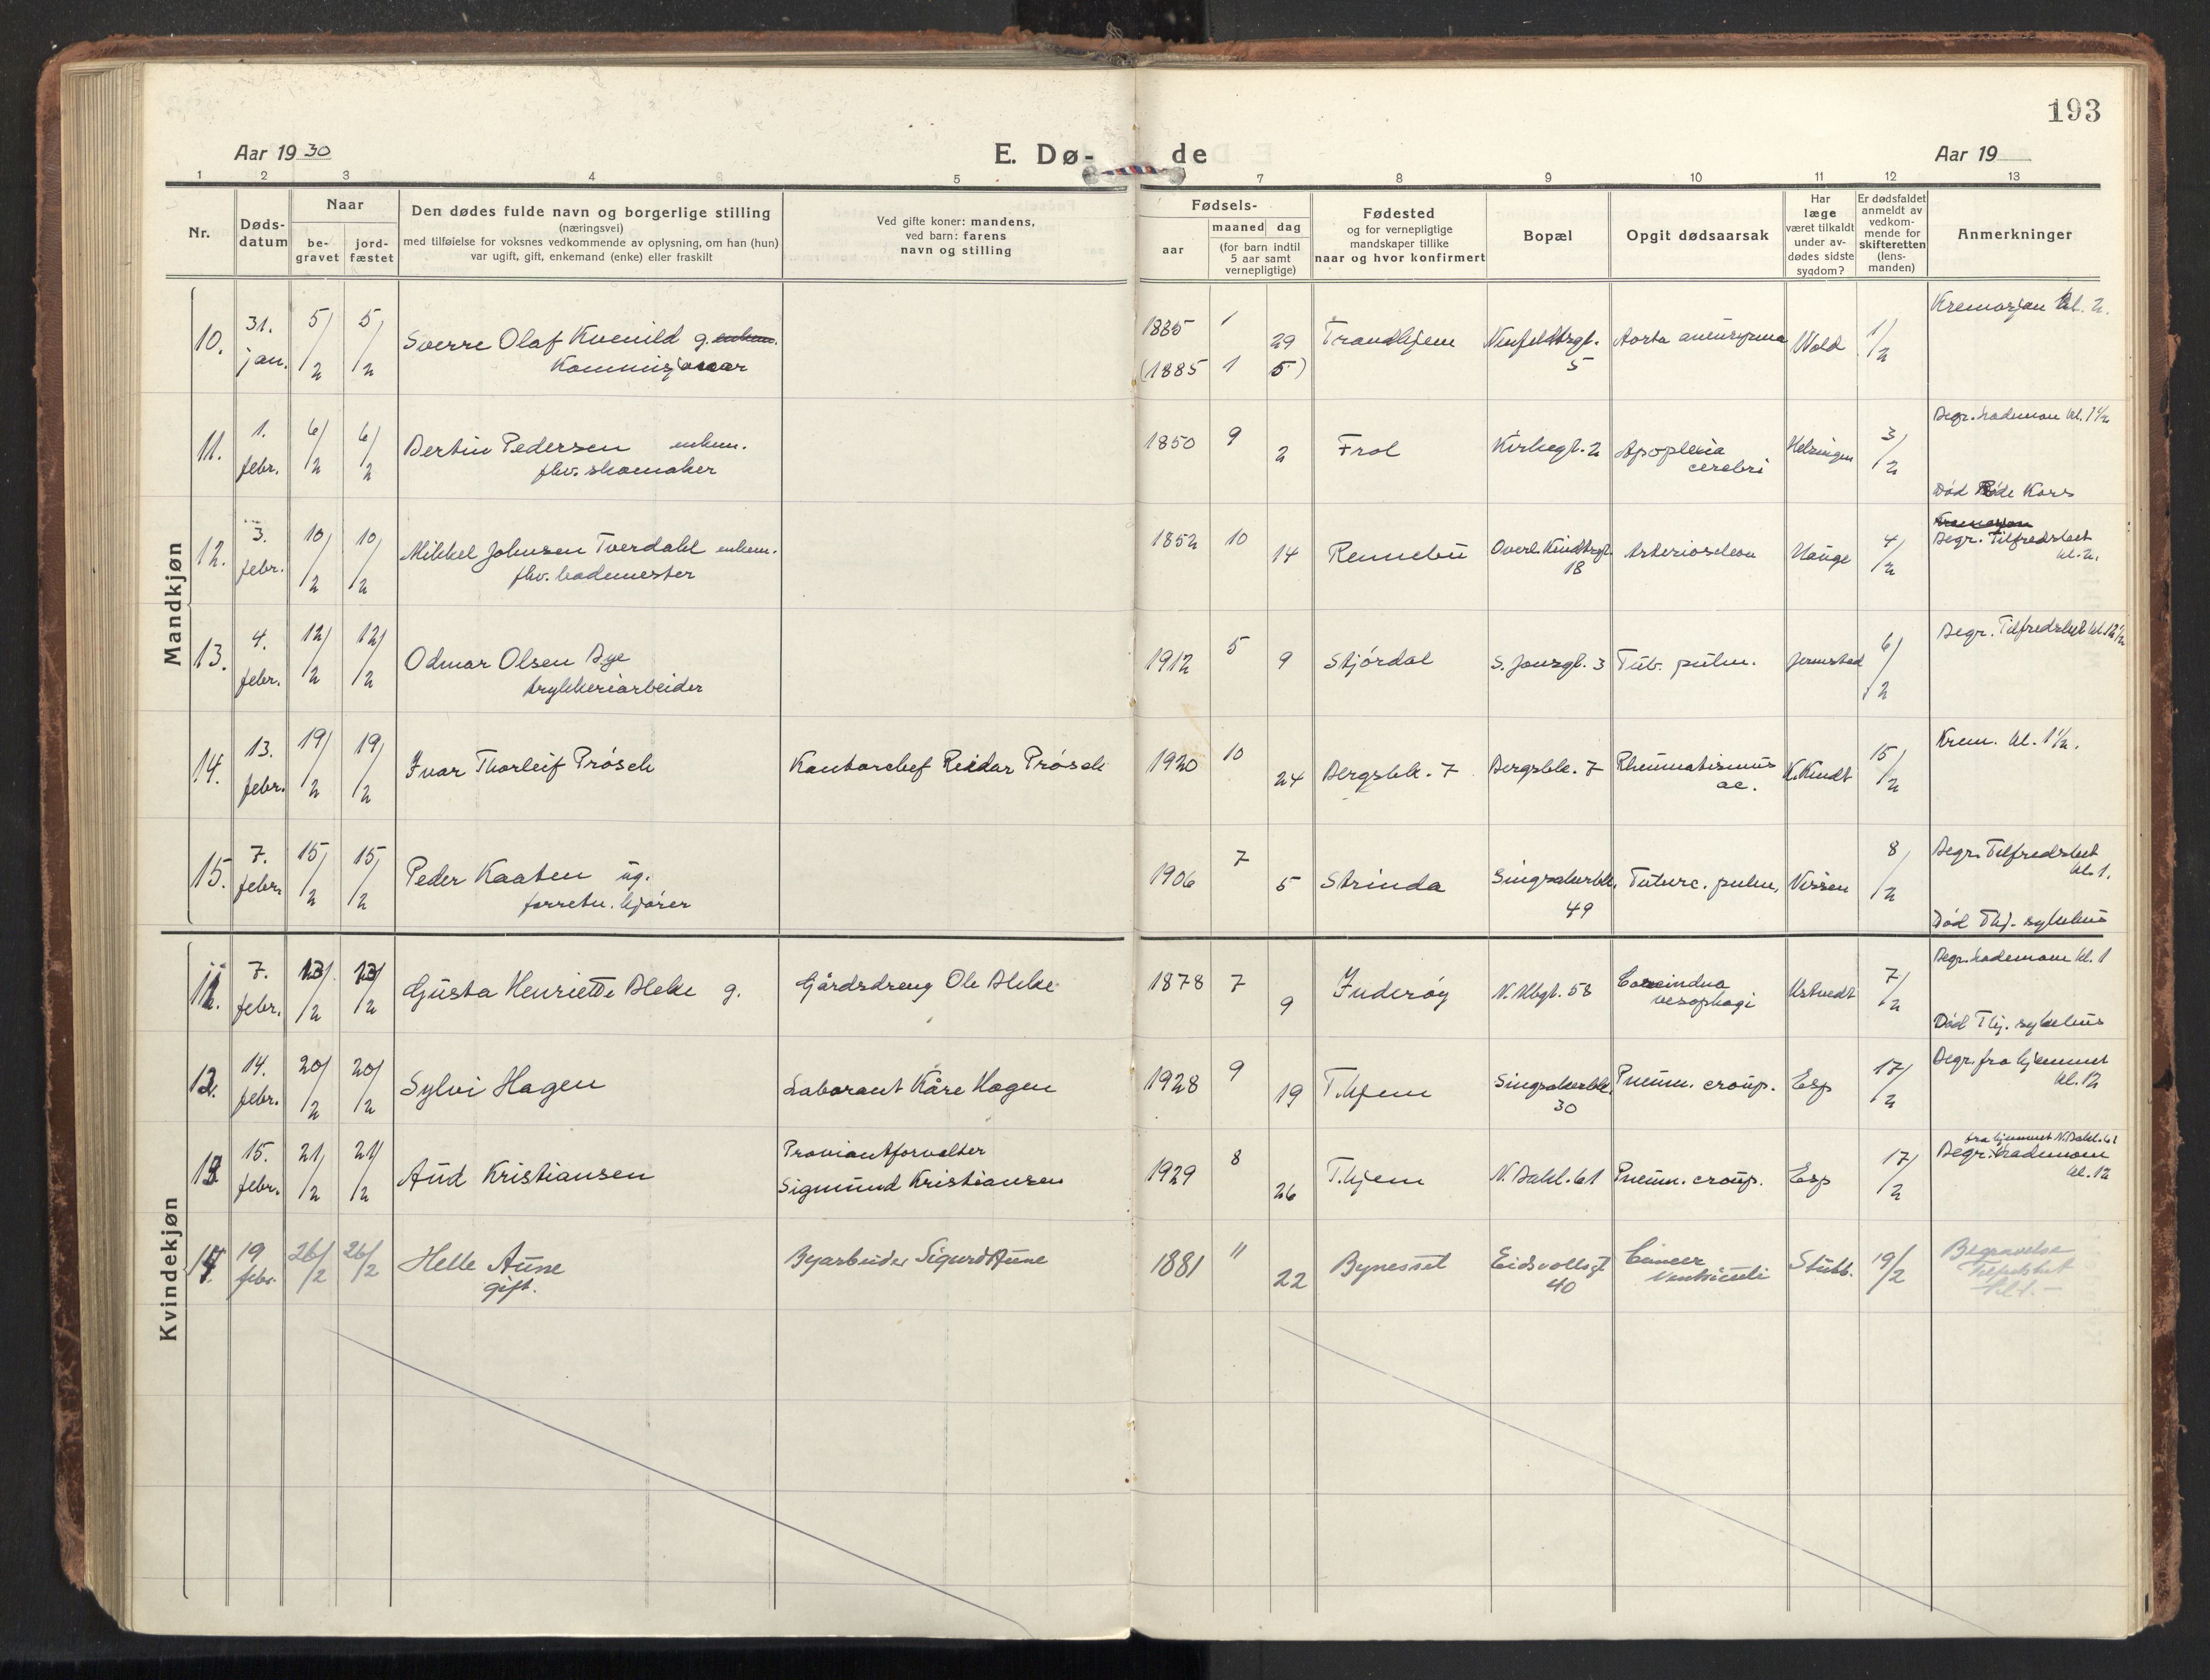 193
Aar 1930
E. Dø-
de
Aar 19
1 2 3 4 5 7 8 9 10 11 12 13
Nr.
Døds-
datum
Naar
be-
gravet
jord-
fæstet
Den dødes fulde navn og borgerlige stilling
(næringsvei)
med tilføielse for voksnes vedkommende av oplysning, om han (hun)
var ugift, gift, enkemand (enke) eller fraskilt
Ved gifte koner: mandens,
ved barn: farens
navn og stilling
Fødsels-
aar
maaned dag
(for barn indtil
5 aar samt
vernepligtige)
Fødested
og for vernepligtige
mandskaper tillike
naar og hvor konfirmert
Bopæl
Opgit dødsaarsak
Har
læge
været tilkaldt
under av-
dødes sidste
sygdom?
Er dødsfaldet
anmeldt av
vedkom-
mende for
skifteretten
(lens-
manden)
Anmerkninger
Mandkjøn
10. 31. jan. 5/2 5/2 Sverre Olaf Kvenild g. enkem.
Kommisjonær
1885 1 29 Trondhjem
(1885 1 5)
5 Aorta aneurysma Wold 1/2 Kremasjon kl. 2.
11. 1. febr. 6/2 6/2 Bertin Pedersen enkem.
fhv. skomaker
1850 9 2 Frol Kirkegt. 2 Apoplexia
cerebri
Helsingen 3/2 Begr. Lademoen kl. 1 1/2
Død Røde Kors
12. 3. febr. 10/2 10/2 Mikkel Johnsen Tverdahl enkem.
fhv. bademester
1852 10 14 Rennebu Overl. Kindtsgt.
18
Hauge 4/2 Kremasjon
Begr. Tilfredshet
kl. 2.
13. 4. febr. 12/2 12/2 Odmar Olsen Bye
trykkeriarbeider
1912 5 9 Stjørdal S. Jonsgt. 3 Tub. pulm. Jermstad 6/2 Begr. Tilfredshet kl. 12 1/2
14. 13. febr. 19/2 19/2 Ivar Thorleif Prøsch Kontorchef Reidar Prøsch
1920 10 24 Bergsbk. 7 Bergsbk. 7 Rheumatismus
ac.
K. Kindt 15/2 Krem. kl. 1 1/2.
15. 7. febr. 15/2 15/2 Peder Kaaten ug.
forretn. kjører
1906 7 5 Strinda Singsakerbk.
49
Tuberc. pulm. Nissen 8/2 Begr. Tilfredshet
kl. 1.
Død Thj. sykehus
Kvindekjøn
11. 7. febr. 13/2 13/2 Gusta Henriette Bleke g. Gårdsdreng Ole Bleke
1878 7 9 Inderøy N. Ilbgt. 58
oesophagi
Ustvedt 7/2 Begr. Lademoen kl. 1
Død Thj. sykehus
12. 14. febr. 20/2 20/2 Sylvi Hagen Laborant Kåre Hagen
1928 9 19 T.hjem Singsakerbk.
30
Pneum. croup. Esp 17/2 Begr. fra hjemmet
kl. 12
13. 15. febr. 21/2 21/2 Aud Kristiansen Proviantforvalter
Sigmund Kristiansen
1929 8 26 T.hjem N. Bakl. 61 Pneum. croup. Esp 17/2 fra hjemmet N. Bakl. 61
Begr. Lademoen
kl. 12
14. 19 febr. 26/2 26/2 Helle Aune
gift.
Byarbeider Sigurd Aune
1881 11 22 Bynesset Eidsvollsgt
40
Cancer
Ventriculi
Stubb. 19/2 Begravelse
Tilfredshet
kl 1.